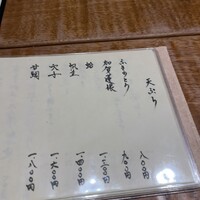 天ぷら 八〇〇円
ふきのとう 九〇〇円
加賀蓮根 一二〇〇円
蛤 一四〇〇円
牡蛎
穴子 一六〇〇円
甘鯛 一八〇〇円